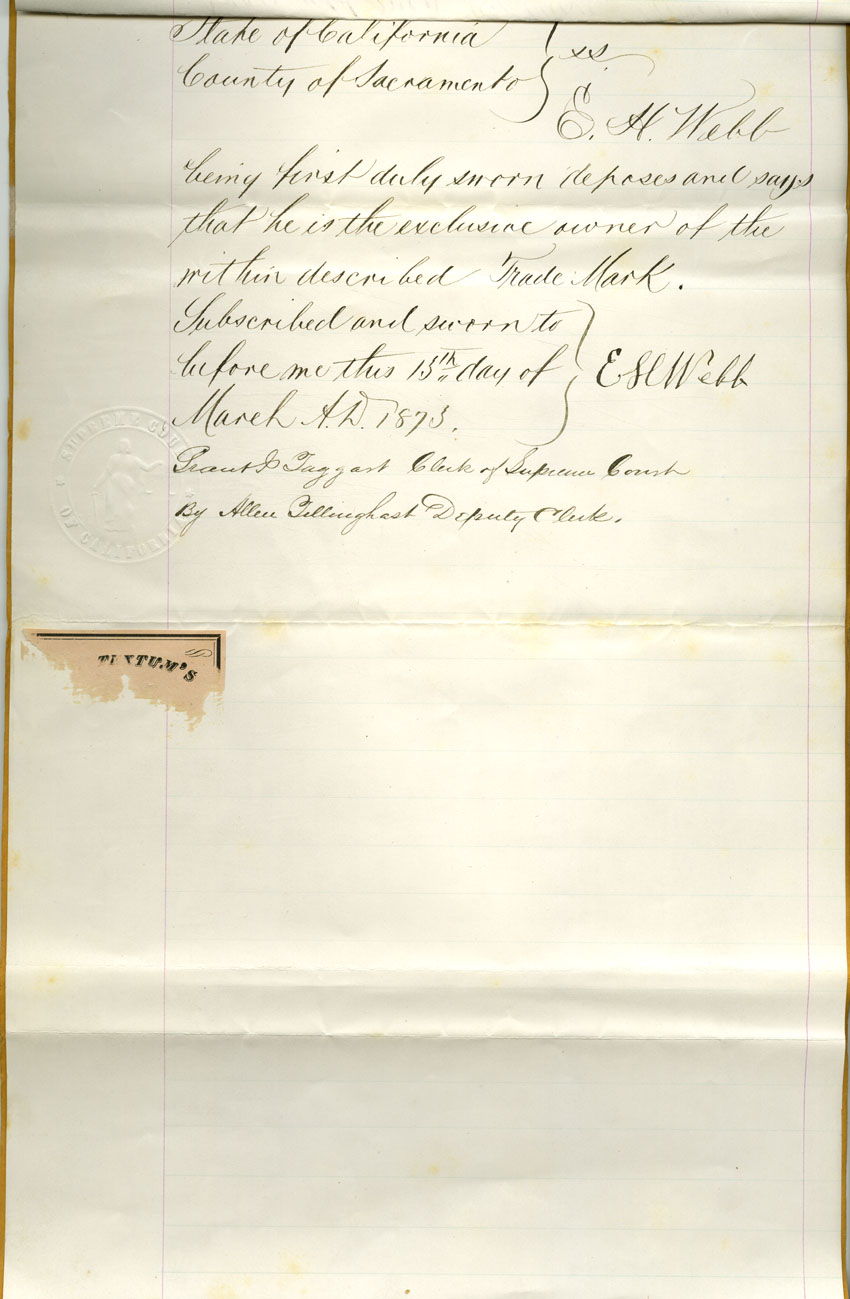 State of California } ss.
County of Sacramento
E. H. Webb
being first duly sworn deposes and says
that he is the exclusive owner of the
within described Trade Mark.
Subscribed and sworn to
before me this 13th day of } E H Webb
March A.D. 1873.
Grant I Taggart Clerk of Supreme Court
By Allen Tillinghast Deputy Clerk.
SUPREME COURT
OF CALIFORNIA
TINTUM'S